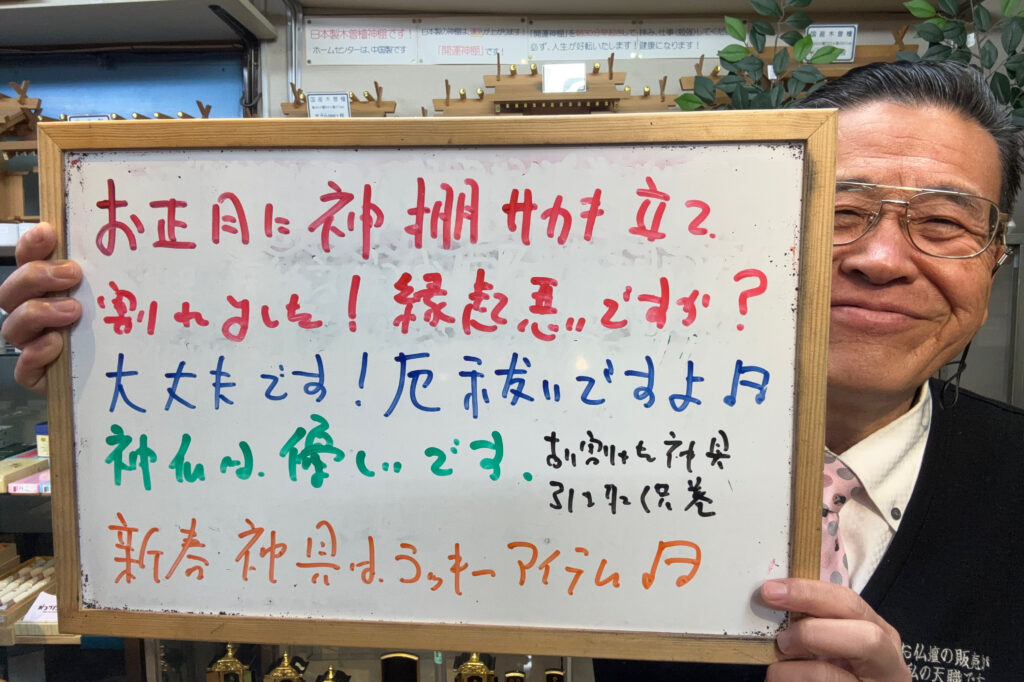 日本製木曽檜神棚です!
ホームセンターは、中国製です
「開運神棚」です!
必ず、人生が好転いたします!健康になります!
国産木曽檜
国産木曽檜
お正月に神棚サカキ立て
割れました!縁起悪いですか?
大丈夫です!厄祓いですよ♫
神仏は、優しいです。
お割れた神具
新春神具は、ラッキーアイテム♫
お仏壇の販売が
私の天職です